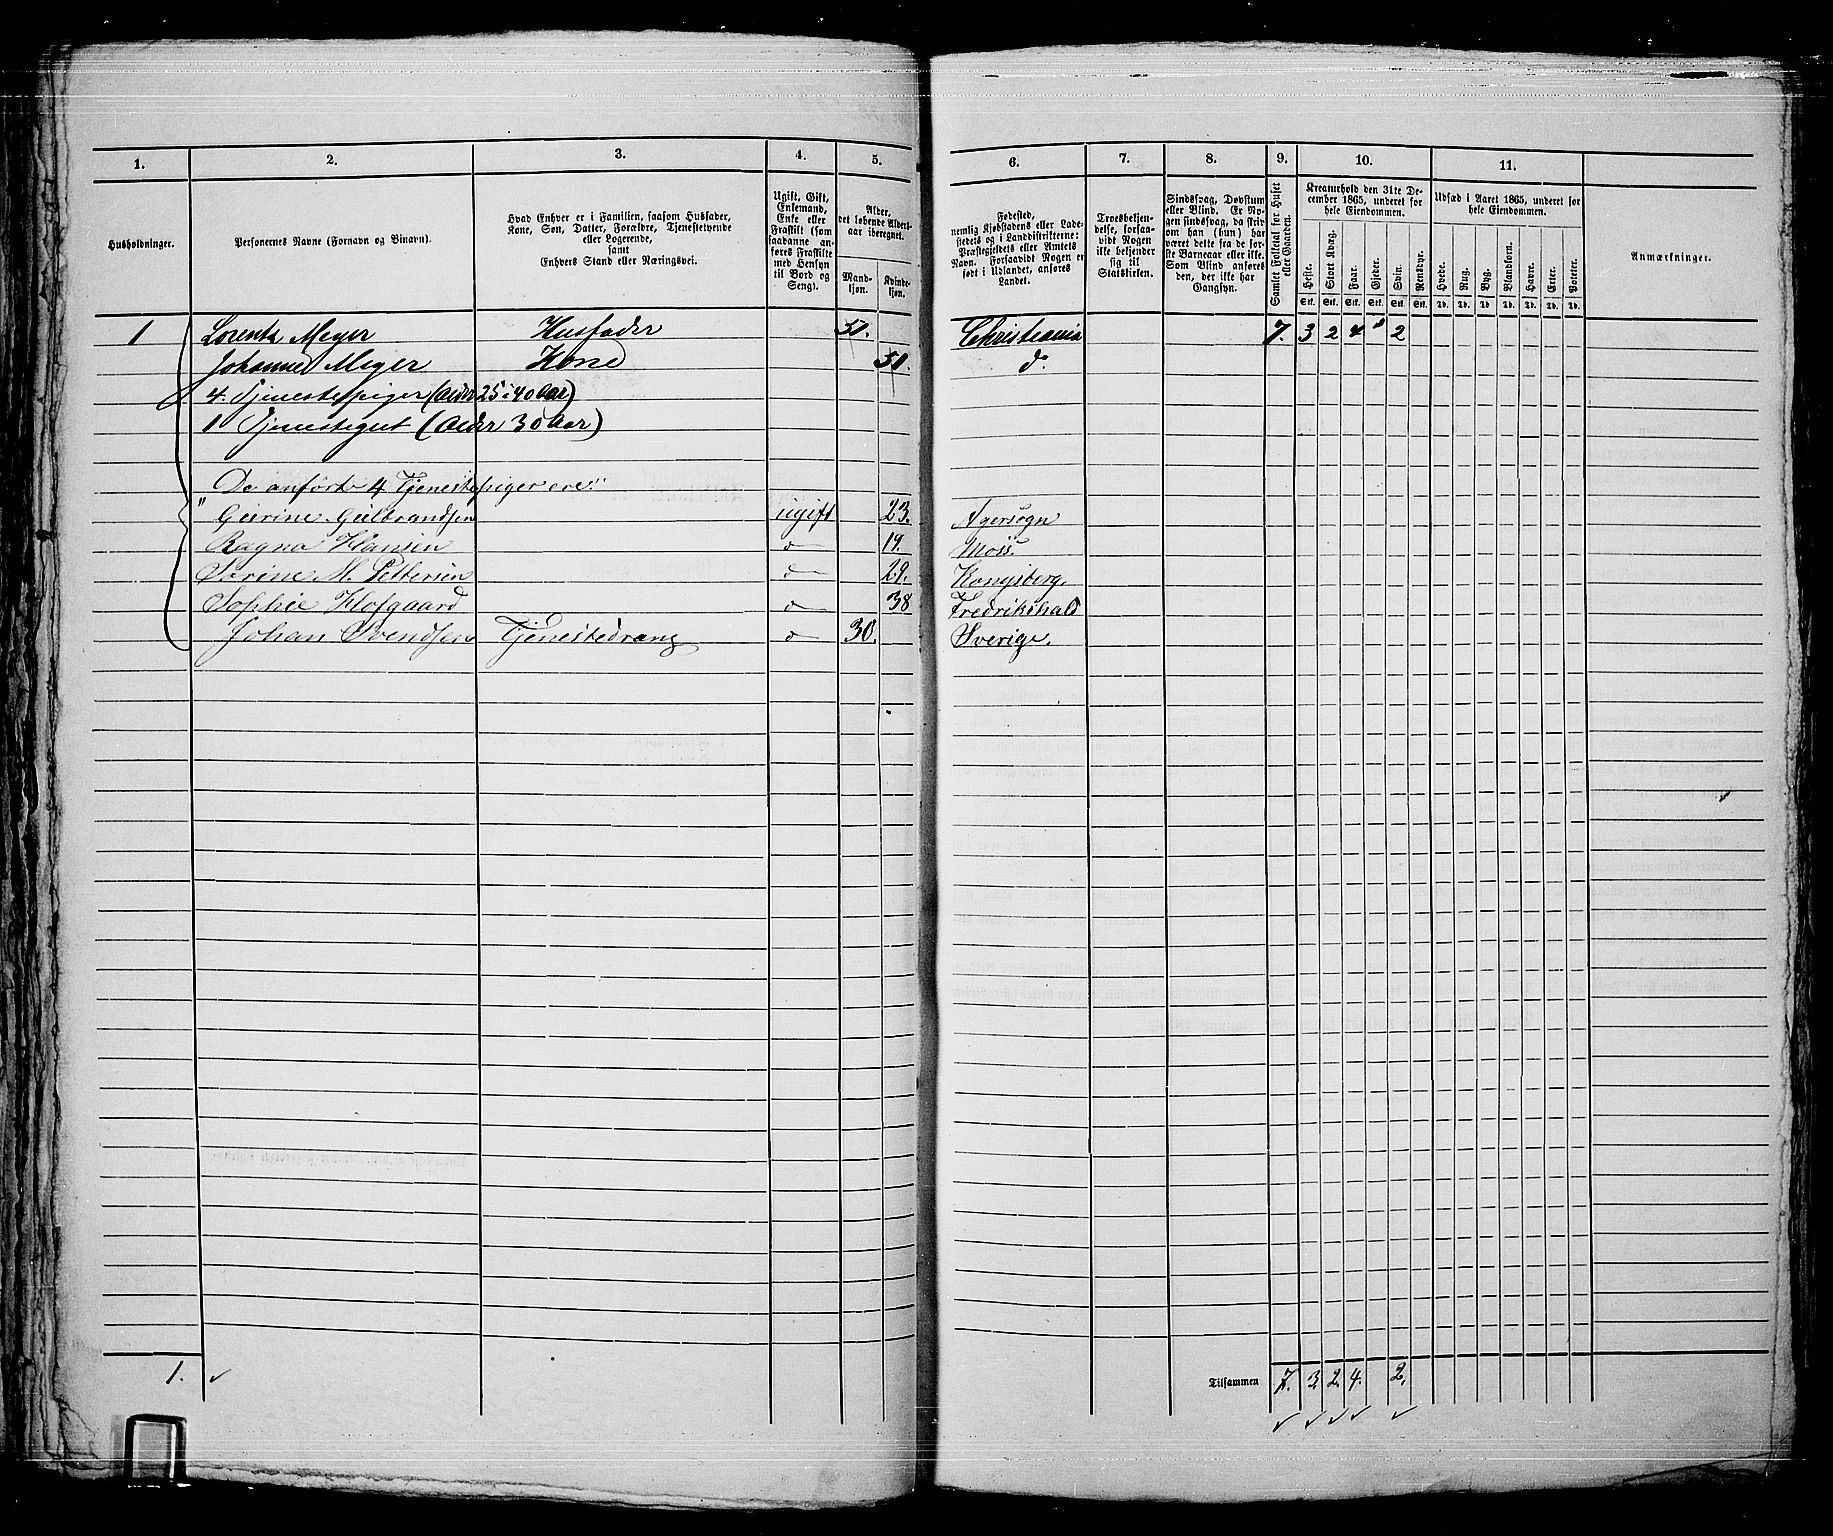 1. 2. 3. 4. 5. 6. 7. 8. 9. 10. 11.
Husholdninger.
Personernes Navne (Fornavn og Binavn).
Hvad Enhver er i Familien, saasom Husfader,
Kone, Søn, Datter, Forældre, Tjenestetyende
eller Logerende,
samt
Enhvers Stand eller Næringsvei.
Ugift, Gift,
Enkemand,
Enke eller
Fraskilt (som
saadanne an-
føres Fraskilte
med Hensyn
til Bord og
Seng).
Alder,
det løbende Alders-
aar iberegnet.
Mand-
kjøn.
Kvinde-
kjøn.
Fødested,
nemlig Kjøbstadens eller Lade-
stedets og i Landdistrikterne:
Præstegjeldets eller Amtets
Navn. Forsaavidt Nogen er
født i Udlandet, anføres
Landet.
Troesbekjen-
delse, forsaa-
vidt Nogen
ikke bekjender
sig til
Statskirken.
Sindssvag, Døvstum
eller Blind. Er No-
gen sindssvag, da skriv
om han (hun) har
været dette fra de før-
ste Barneaar eller ikke.
Som Blind anføres
den, der ikke har
Gangsyn.
Samlet Folketal for Huset
eller Gaarden.
Kreaturhold den 31te De-
cember 1865, underet for
hele Eiendommen.
Heste. Stort Kvæg. Faar. Gjeder. Svin. Rensdyr.
Stk. Stk. Stk. Stk. Stk. Stk.
Udsæd i Aaret 1865, underet for
hele Eiendommen.
Hvede. Rug. Byg. Blandkorn. Havre. Erter. Poteter.
Td. Td. Td. Td. Td. Td. Td.
Anmærkninger.
1 Lorentz Meyer Husfader 51. Christiania 7. 3 2 4 " 2
Johanne Meyer Kone 51. do
4 Tjenestepiger (Alder 25-40 Aar)
1 Tjenestegut (Alder 30 Aar)
De anførte 4 Tjenestepiger ere:
" Gurine Gulbrandsen ugift 23. Agersogn
Ragna Hansen do 19. Moss.
Sorine M. Pettersen do 29. Kongsberg
Sophie Hofgaard do 38 Fredrikshald
Johan Svendsen Tjenestedreng do 30. Sverige.
1. Tilsammen 7. 3 2 4. 2.